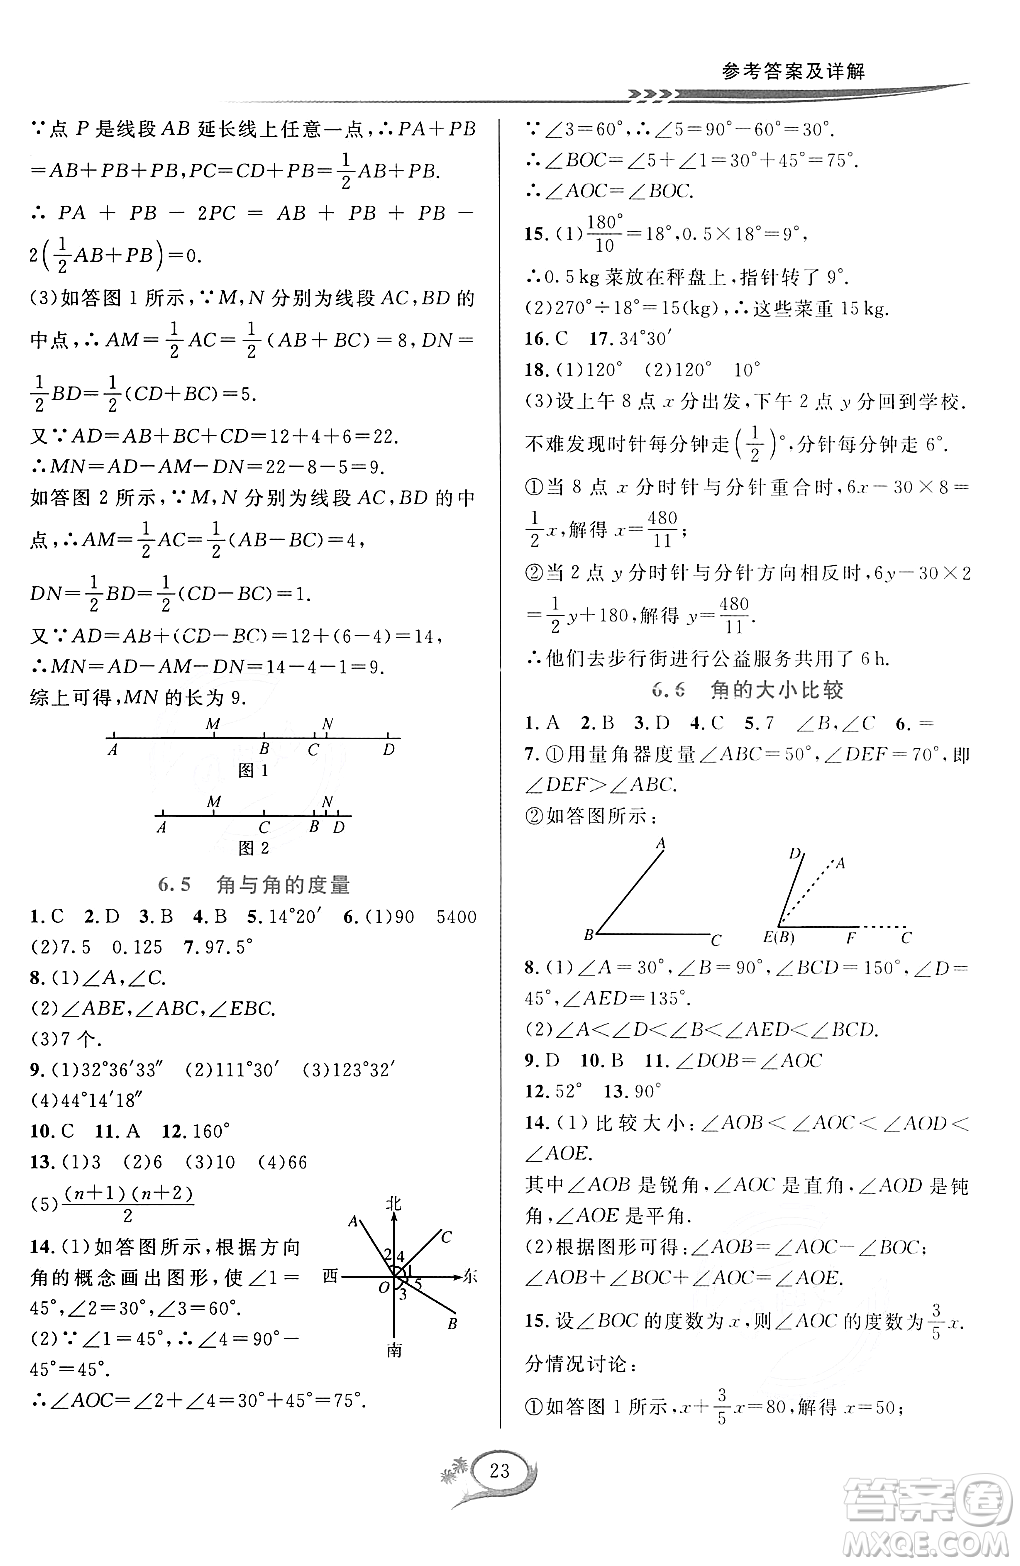 参考答案及详解
∵点 P 是线段 AB 延长线上任意一点,∴PA+PB
=AB+PB+PB,PC=CD+PB=1/2AB+PB.
∴ PA + PB - 2PC = AB + PB + PB -
2(1/2AB+PB)=0.
(3)如答图 1 所示,∵M,N 分别为线段 AC,BD 的
中点,∴AM=1/2AC=1/2(AB+BC)=8,DN=
1/2BD=1/2(CD+BC)=5.
又∵AD=AB+BC+CD=12+4+6=22.
∴MN=AD-AM-DN=22-8-5=9.
如答图 2 所示,∵M,N 分别为线段 AC,BD 的中
点,∴AM=1/2AC=1/2(AB-BC)=4,
DN=1/2BD=1/2(CD-BC)=1.
又∵AD=AB+(CD-BC)=12+(6-4)=14,
∴MN=AD-AM-DN=14-4-1=9.
综上可得,MN 的长为 9.
M N
A B C D
图 1
M N
A C B D
图 2
6.5 角与角的度量
1.C 2.D 3.B 4.B 5.14°20′ 6.(1)90 5400
(2)7.5 0.125 7.97.5°
8.(1)∠A,∠C.
(2)∠ABE,∠ABC,∠EBC.
(3)7 个.
9.(1)32°36′33″ (2)111°30′ (3)123°30′
(4)44°14′18″
10.C 11.A 12.160°
13.(1)3 (2)6 (3)10 (4)66
(5)(n+1)(n+2)/2
14.(1)如答图所示,根据方向
角的概念画出图形,使∠1=
45°,∠2=30°,∠3=60°.
(2)∵∠1=45°,∴∠4=90°-
45°=45°.
∴∠AOC=∠2+∠4=30°+45°=75°.
北
A C
2 4
西 1 东
O 3 5
B
南
∵∠3=60°,∴∠5=90°-60°=30°.
∴∠BOC=∠5+∠1=30°+45°=75°.
∴∠AOC=∠BOC.
15.(1)180°/10=18°,0.5×18°=9°,
∴0.5 kg 菜放在秤盘上,指针转了 9°.
(2)270°÷18°=15(kg),∴这些菜重 15 kg.
16.C 17.34°30′
18.(1)120° (2)120° 10°
(3)设上午 8 点 x 分出发,下午 2 点 y 分回到学校.
不难发现时针每分钟走(1/2)°,分针每分钟走 6°.
①当 8 点 x 分时针与分针重合时,6x-30×8=
1/2x,解得 x=480/11;
②当 2 点 y 分时针与分针方向相反时,6y-30×2
=1/2y+180,解得 y=480/11.
∴他们去步行街进行公益服务共用了 6 h.
6.6 角的大小比较
1.A 2.B 3.D 4.C 5.7 ∠B,∠C 6.=
7.①用量角器度量∠ABC=50°,∠DEF=70°,即
∠DEF>∠ABC.
②如答图所示:
A D A
B C E(B) F C
8.(1)∠A=30°,∠B=90°,∠BCD=150°,∠D=
45°,∠AED=135°.
(2)∠A<∠D<∠B<∠AED<∠BCD.
9.D 10.B 11.∠DOB=∠AOC
12.52° 13.90°
14.(1)比较大小:∠AOB<∠AOC<∠AOD<
∠AOE.
其中∠AOB 是锐角,∠AOC 是直角,∠AOD 是钝
角,∠AOE 是平角.
(2)根据图形可得:∠AOB=∠AOC-∠BOC;
∠AOB+∠BOC+∠COD+∠DOE=∠AOE.
15.设∠BOC 的度数为 x,则∠AOC 的度数为3/5x.
分情况讨论:
①如答图 1 所示,x+3/5x=80,解得 x=50;
23
答案圈
MXQE.COM